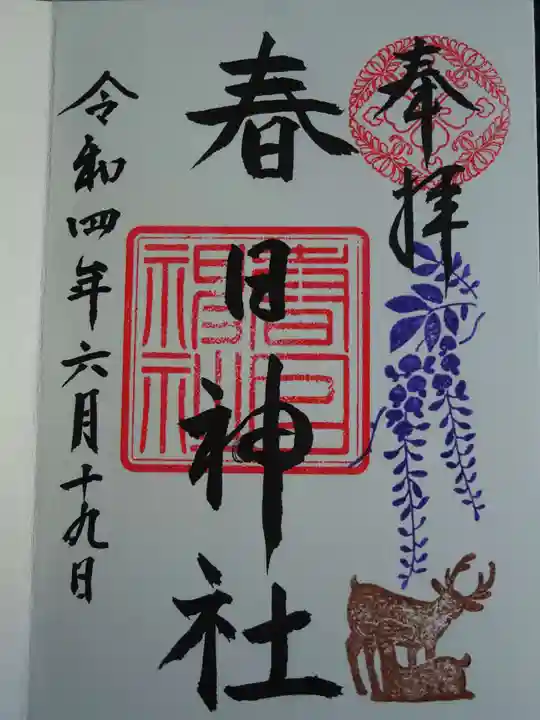 奉拝
春日神社
春日
神社
令和四年六月十九日